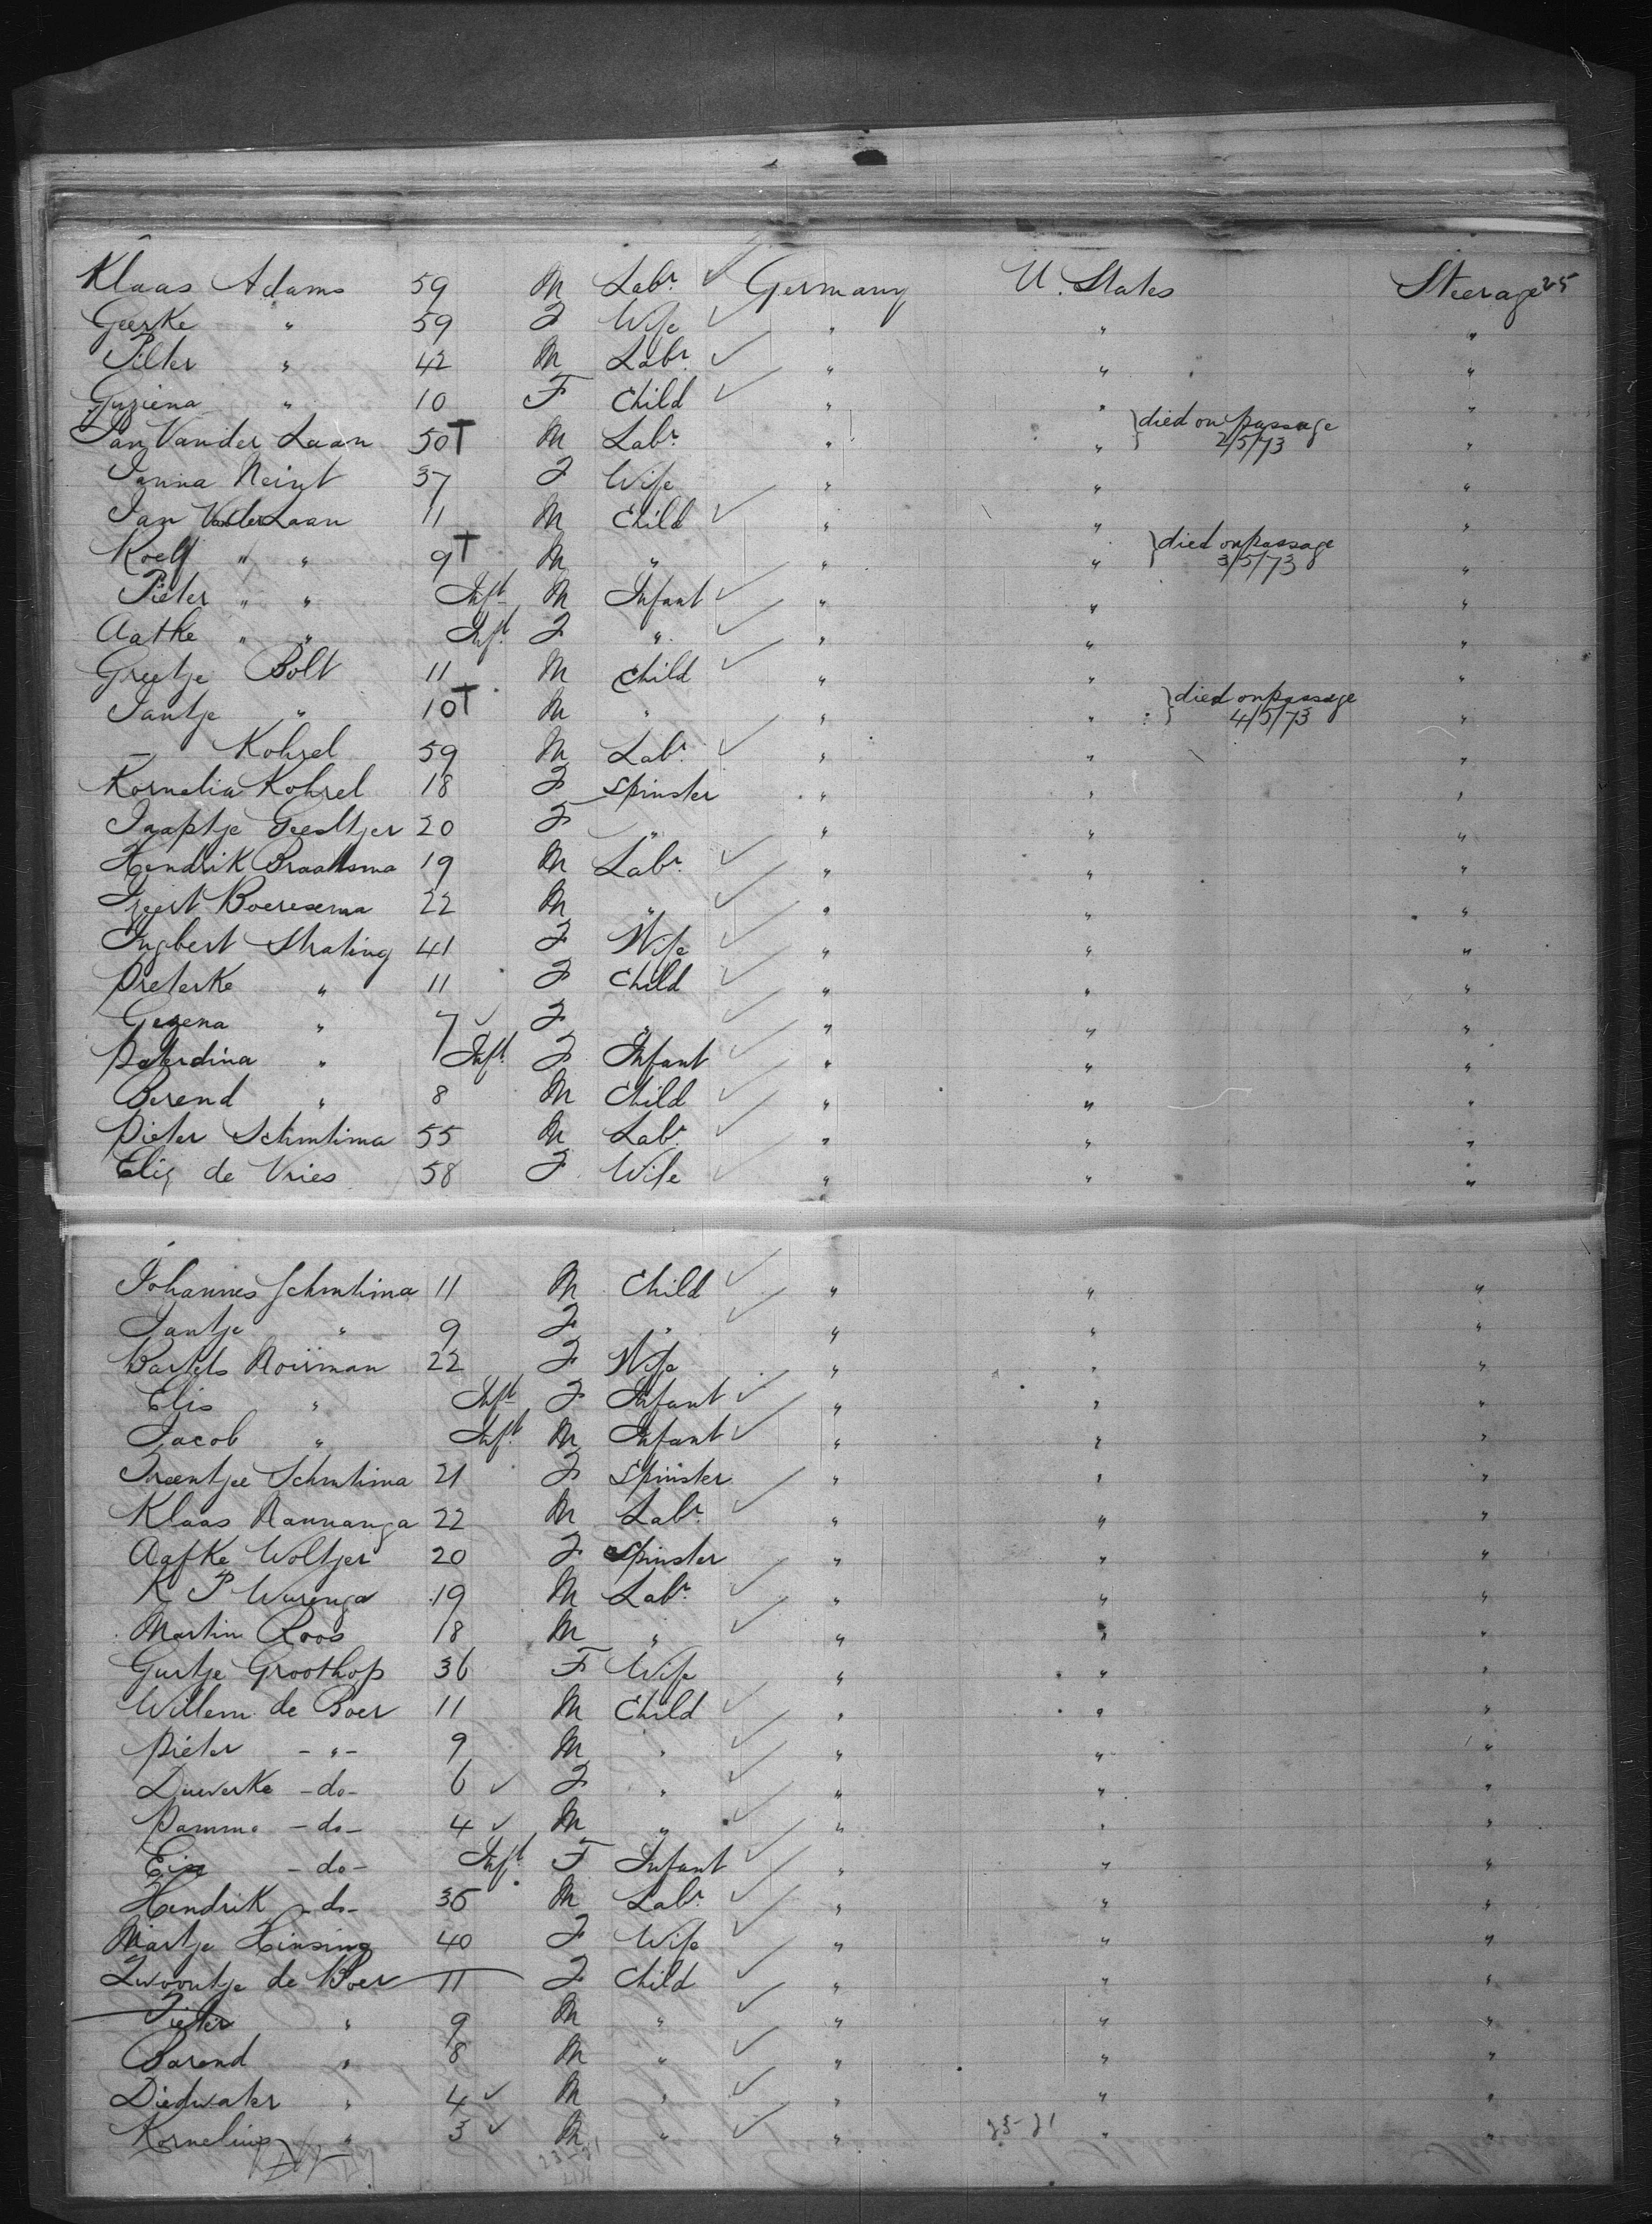 Klaas Adams 59 M Labr. Germany U. States Steerage 25
Geerke " 59 F Wife " " "
Pilter " 42 M Labr. " " "
Guziena " 10 F Child " " "
Jan Vander Laan 50 T M Labr. " " } died on passage 2/5/73 "
Janna Neint 37 F Wife " " "
Jan VanderLaan 11 M Child " " "
Roelf " " 9 T M " " " } died on passage 3/5/73 "
Pieter " " Inft M Infant " " "
Aatke " " Inft F " " " "
Greetje Bolt 11 M Child " " "
Jantje " 10 T M " " " } died on passage 4/5/73 "
— Kohrel 59 M Labr. " " "
Kornelia Kohrel 18 F Spinster " " "
Jaaptje Geestjer 20 F " " " "
Hendrik Braaksma 19 M Labr. " " "
Geert Boeresema 22 M " " " "
Engbert Strating 41 F Wife " " "
Pieterke " 11 F Child " " "
Gezena " 7 F " " " "
Pieterdina " Inft F Infant " " "
Berend " 8 M Child " " "
Pieter Schmtima 55 M Labr. " " "
Elis de Vries 58 F Wife " " "
Johannes Schmtima 11 M Child " " "
Jantje " 9 F " " " "
Bartels Noirman 22 F Wife " " "
Elis " Inft F Infant " " "
Jacob " Inft M Infant " " "
Treentjee Schmtima 21 F Spinster " " "
Klaas Nannanga 22 M Labr. " " "
Aafke Woltjer 20 F Spinster " " "
K P Wurenga 19 M Labr. " " "
Martin Roos 18 M " " " "
Gurtje Groothof 36 F Wife " " "
Willem de Boer 11 M Child " " "
Pieter - " - 9 M " " " "
Duwerke - do - 6 F " " " "
Pamme - do - 4 M " " " "
Eise - do - Inft F Infant " " "
Hendrik - do - 35 M Labr. " " "
Martje Hinsing 40 F Wife " " "
Zwoontje de Boer 11 F Child " " "
Pieter " 9 M " " " "
Barend " 8 M " " " "
Diedwater " 4 M " " " "
Kornelius " 3 M " " 23-21 " "
23-21